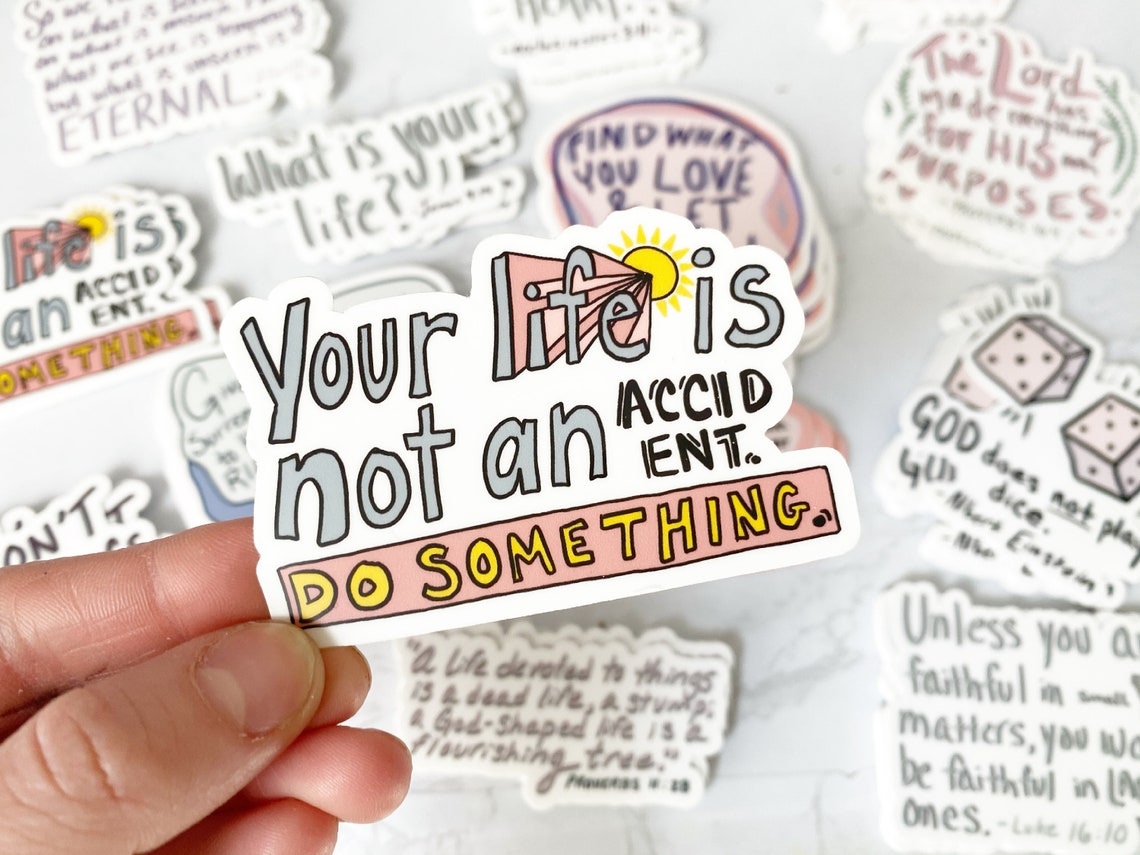 So we
on what is
on what is unseen
what we see is temporary
but what is unseen is
ETERNAL.
What is your
life?
FIND WHAT
YOU LOVE
& LET
The Lord
has
made everything
for HIS own
PURPOSES.
life is
an ACCID
ENT.
SOMETHING.
Your life is
not an ACCID
ENT.
DO SOMETHING.
GOD does not play
dice.
- Albert Einstein
"A life devoted to things
is a dead life, a stump;
a God-shaped life is a
flourishing tree."
Proverbs 11:28
Unless you a
faithful in small
matters, you wo
be faithful in LA
ones. - Luke 16:10